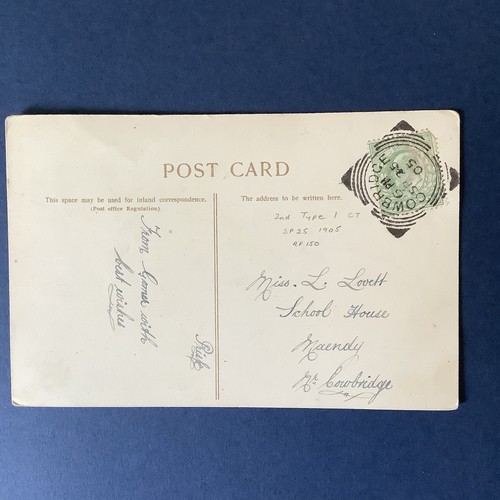 POST CARD
This space may be used for inland correspondence.
(Post office Regulation).
The address to be written here.
2nd Type 1 CT
SP 25 1905
RF 150
From Goma with
best wishes
Miss. L. Lovett
School House
Maendy
Nr Cowbridge
COWBRIDGE
SP 25
05